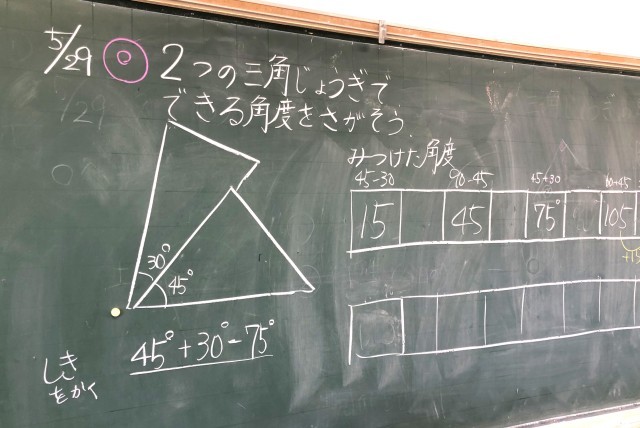 5/29 ⦿ 2つの三角じょうぎで
できる角度をさがそう。
みつけた角度
45-30
90-45
45+30
15
45
75°
105
30°
45°
45°+30°-75°
しき
をかく